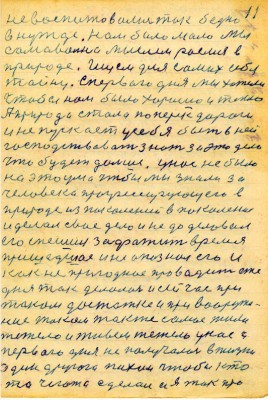 11
не воспитовались так бедно
в нужде. Нам было мало мы
самовольно мысли росли в
природе. Ищем для самих себя
тайну. С первого дня мы хотели
чтобы нам было хорошо и тепло
А природа стала поперек дороги
и не пускает у себя быть в ней
господствовать знать за это дело
что будет дальше. У нас не было
на это ума чтобы мы знали за
человека прогрессирующего в
природе из поколений в поколения
и делая свое дело и не доделовал
его спешил захватить время
пришедшее и не опознал его и
как не пригодное проводить эти
дня так делалось и сейчас при
таком достатке и при вооруже-
ние таком так же самое живем
тяжело и живем тяжело у нас с
первого дня не получалось в жизни
один другого пихали чтобы кто
то чего то сделал и я так про